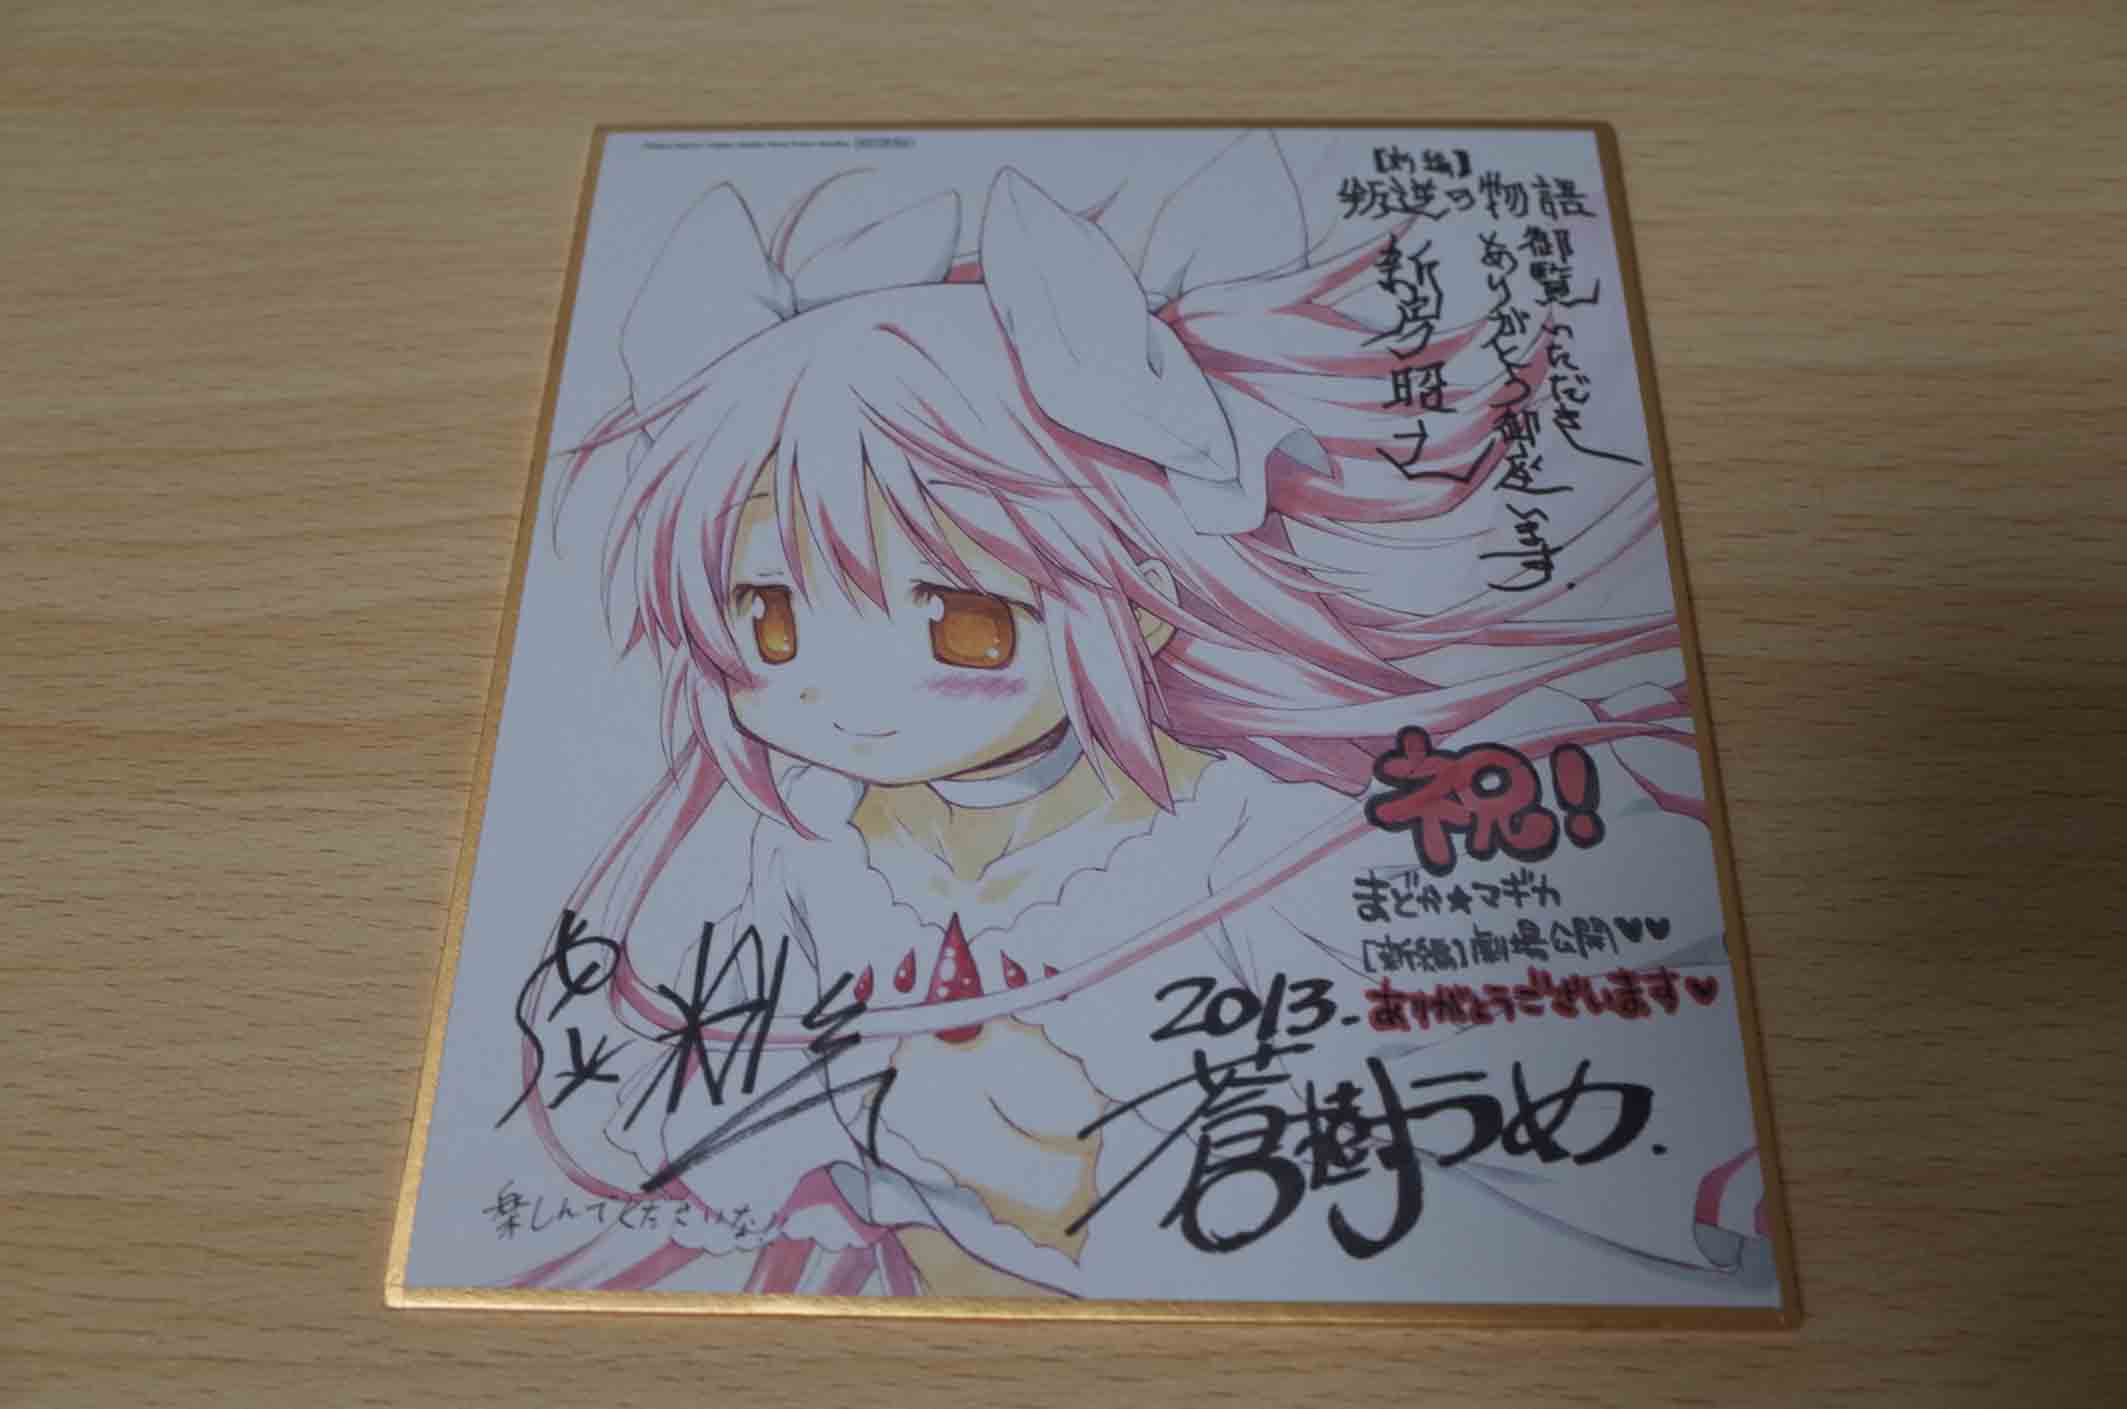 【新編】
叛逆の物語
御覧いただき
ありがとう御座います.
新房昭之
祝!
みどか★マギカ
[新編]劇場公開♥♥
ありがとうございます♥
2013.
蒼樹うめ.
楽しんでくださいな!